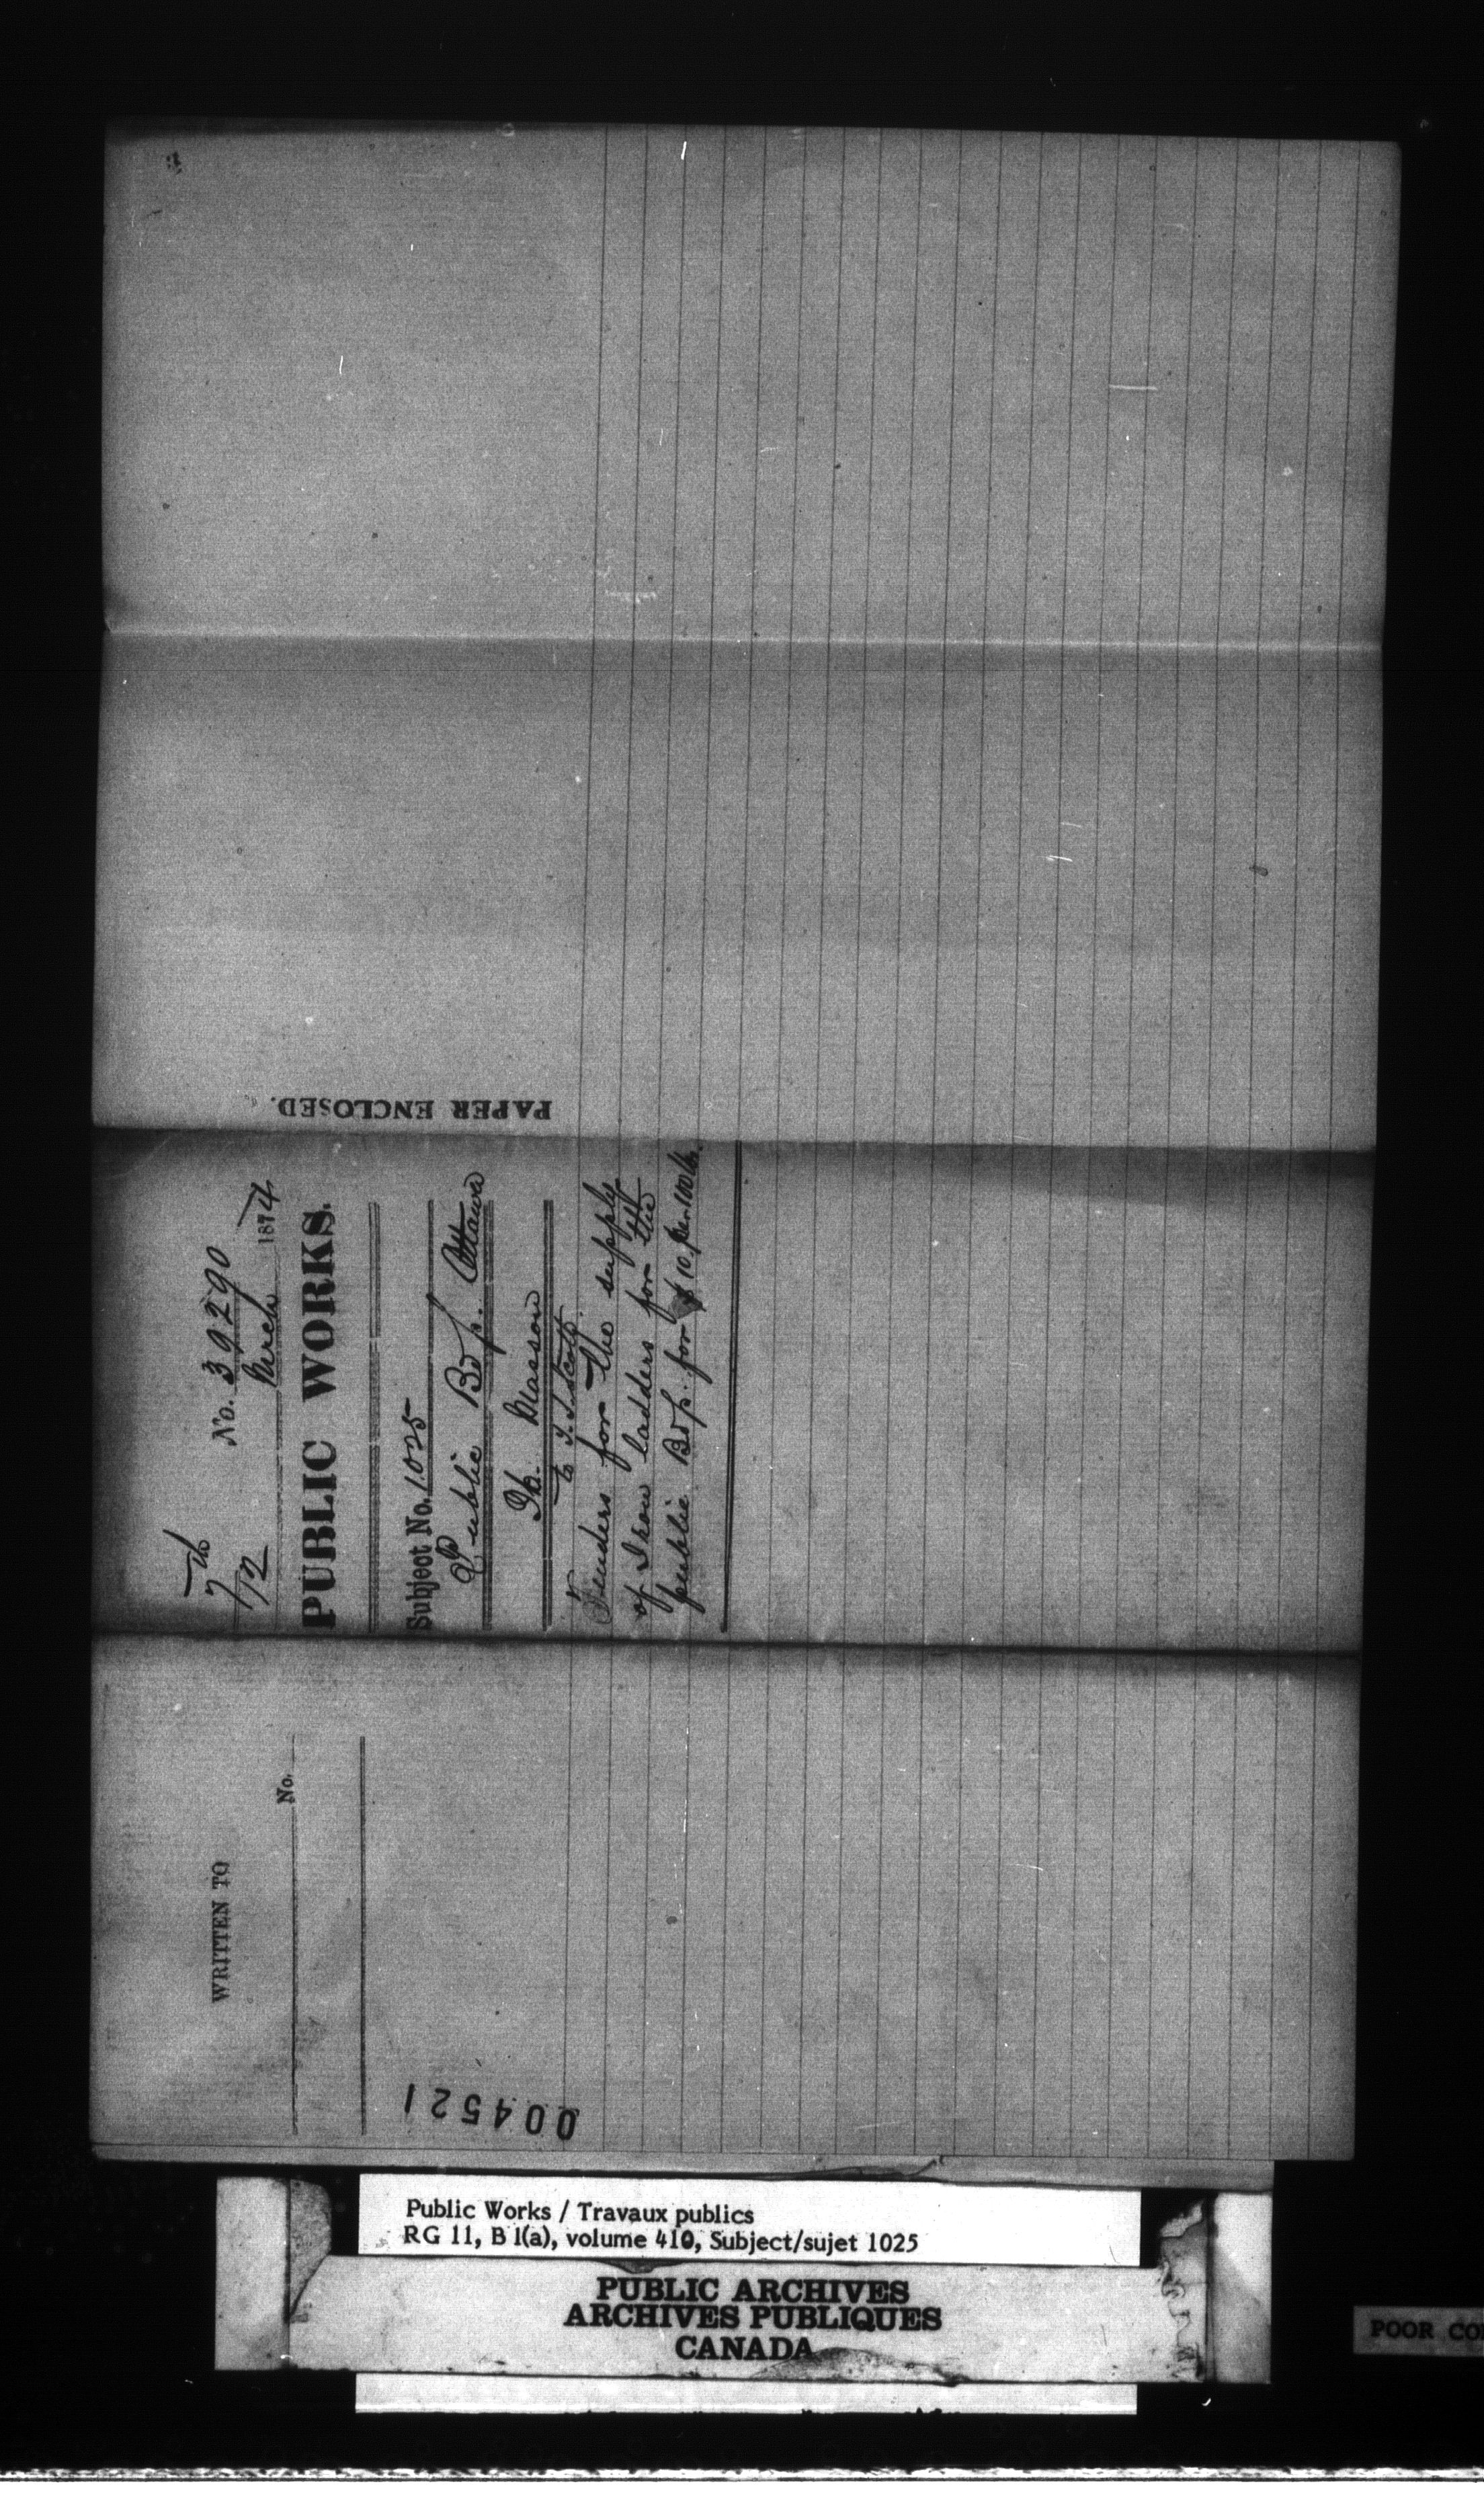 PAPER ENCLOSED.
7th
12
No. 39290
March 1874
PUBLIC WORKS.
Subject No. 1025
Public Bdgs. Ottawa
Masson
to T. S. Scott
Tenders for the supply
of Iron ladders for the
public Bdgs. for $10. per 100 lbs.
WRITTEN TO
No.
004521
Public Works / Travaux publics
RG 11, B 1(a), volume 410, Subject/sujet 1025
PUBLIC ARCHIVES
ARCHIVES PUBLIQUES
CANADA
POOR CO